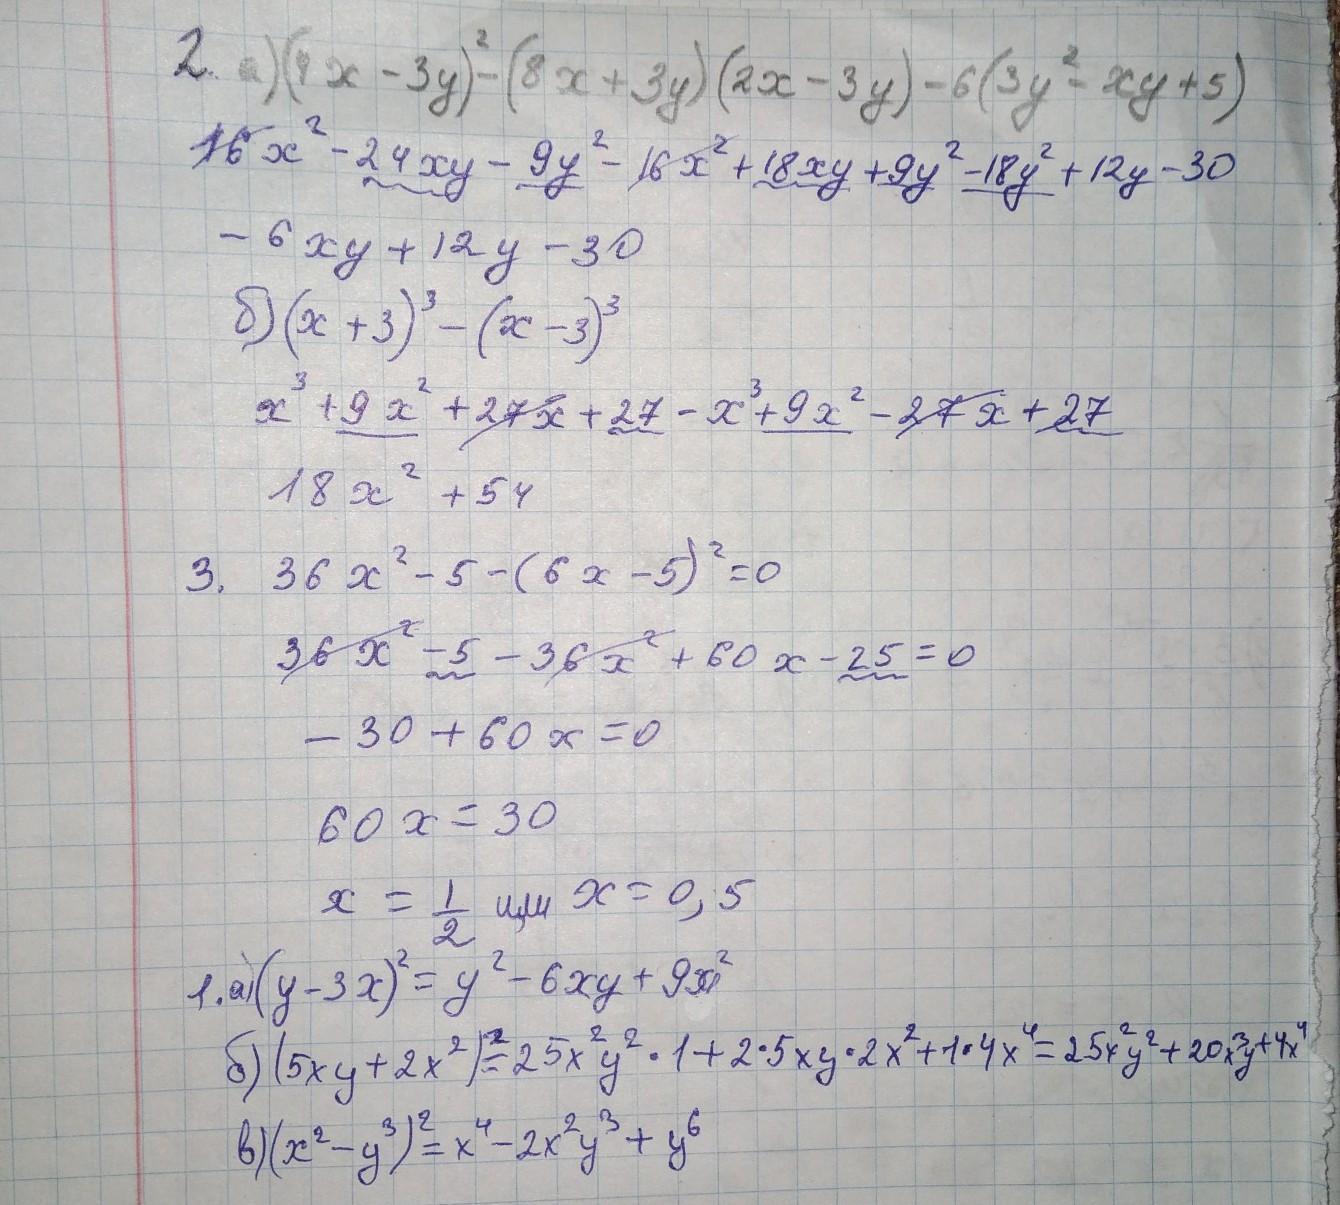 2. а) (4x - 3y)² - (8x + 3y) (2x - 3y) - 6(3y² - xy + 5)
16x² - 24xy - 9y² - 16x² + 18xy + 9y² - 18y² + 12y - 30
- 6xy + 12y - 30
б) (x + 3)³ - (x - 3)³
x³ + 9x² + 27x + 27 - x³ + 9x² - 27x + 27
18x² + 54
3. 36x² - 5 - (6x - 5)² = 0
36x² - 5 - 36x² + 60x - 25 = 0
- 30 + 60x = 0
60x = 30
x = 1/2 или x = 0,5
1. а) (y - 3x)² = y² - 6xy + 9x²
б) (5xy + 2x²)² = 25x²y² · 1 + 2 · 5xy · 2x² + 1 · 4x⁴ = 25x²y² + 20x³y + 4x⁴
в) (x² - y³)² = x⁴ - 2x²y³ + y⁶